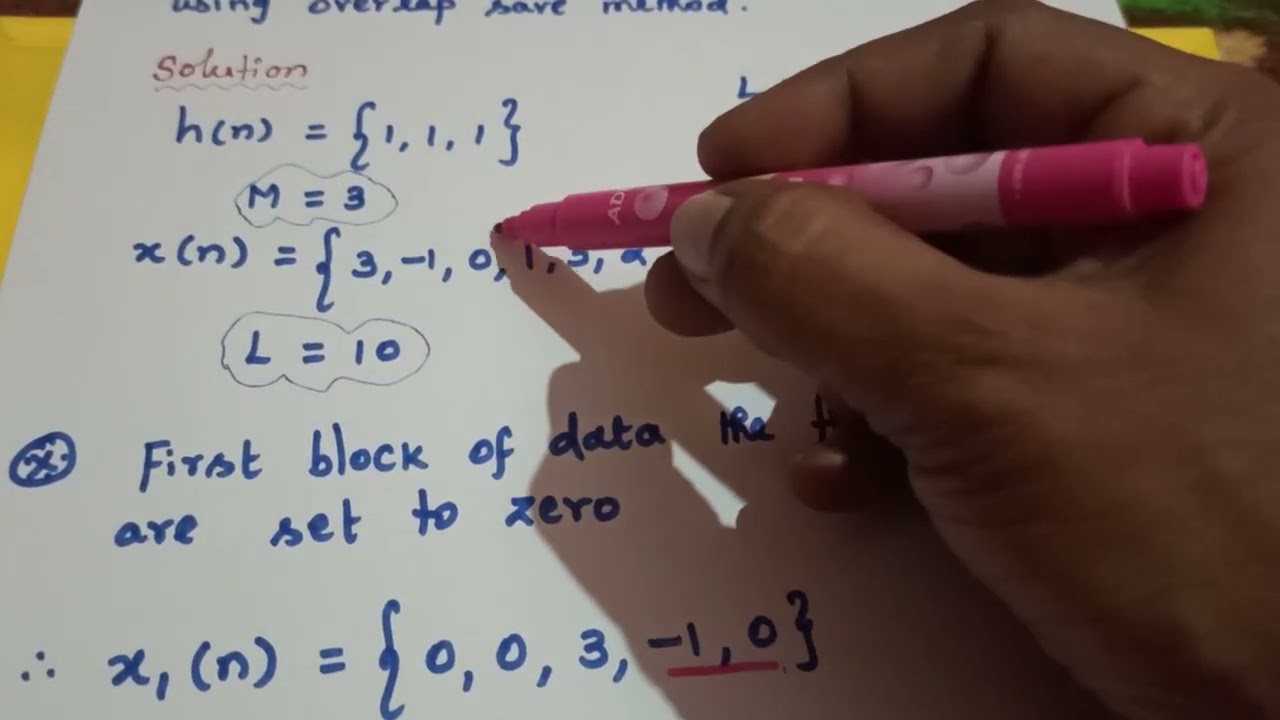 using overlap save method.
Solution
h(n) = {1, 1, 1}
M = 3
x(n) = {3, -1, 0, 1, 3, 2
L = 10
First block of data the
are set to zero
∴ x₁(n) = {0, 0, 3, -1, 0}